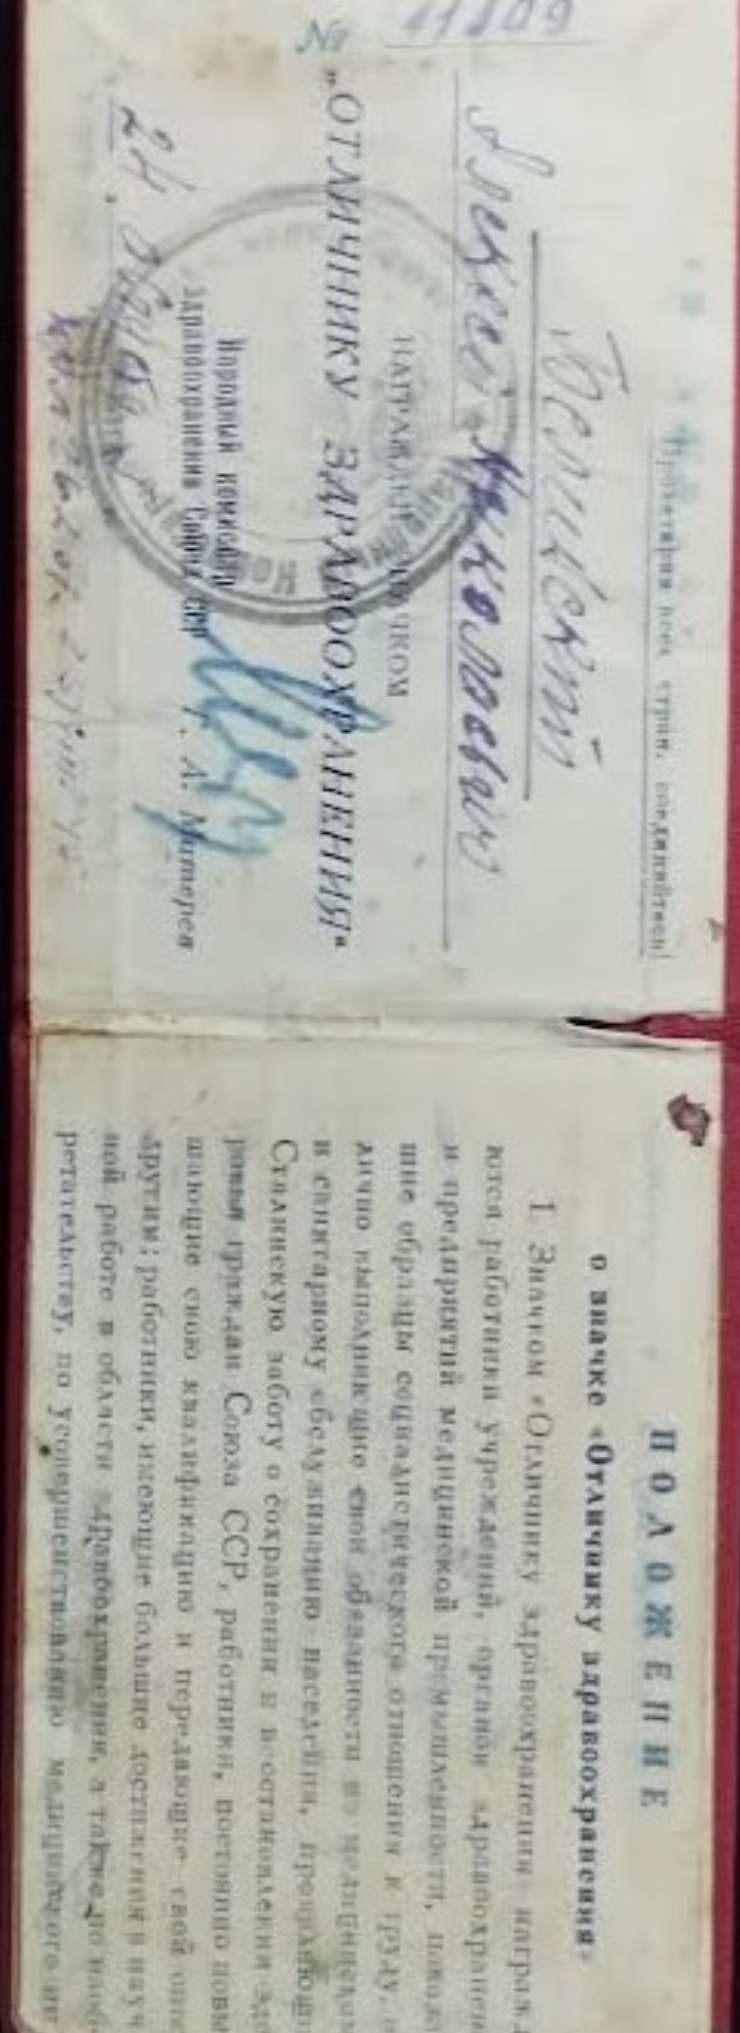 Пролетарии всех стран, соединяйтесь!
№ 11809
Белинский
Алексей Николаевич
НАГРАЖДЕН ЗНАЧКОМ
„ОТЛИЧНИКУ ЗДРАВООХРАНЕНИЯ“
Народный комиссар
здравоохранения Союза ССР Г. А. Митерев
24.
ПОЛОЖЕНИЕ
о значке «Отличнику здравоохранения»
1. Значком «Отличнику здравоохранения» награжда
ются работники учреждений, органов здравоохранен
и предприятий медицинской промышленности, показа
шие образцы социалистического отношения к труду,
лично выполняющие свои обязанности по медицинском
и санитарному обслуживанию населения, проявляющи
Сталинскую заботу о сохранении и восстановлении здо
ровья граждан Союза ССР, работники, постоянно повы
шающие свою квалификацию и передающие свой опы
другим; работники, имеющие большие достижения в науч
ной работе в области здравоохранения, а также по изоб
ретательству, по усовершенствованию медицинского